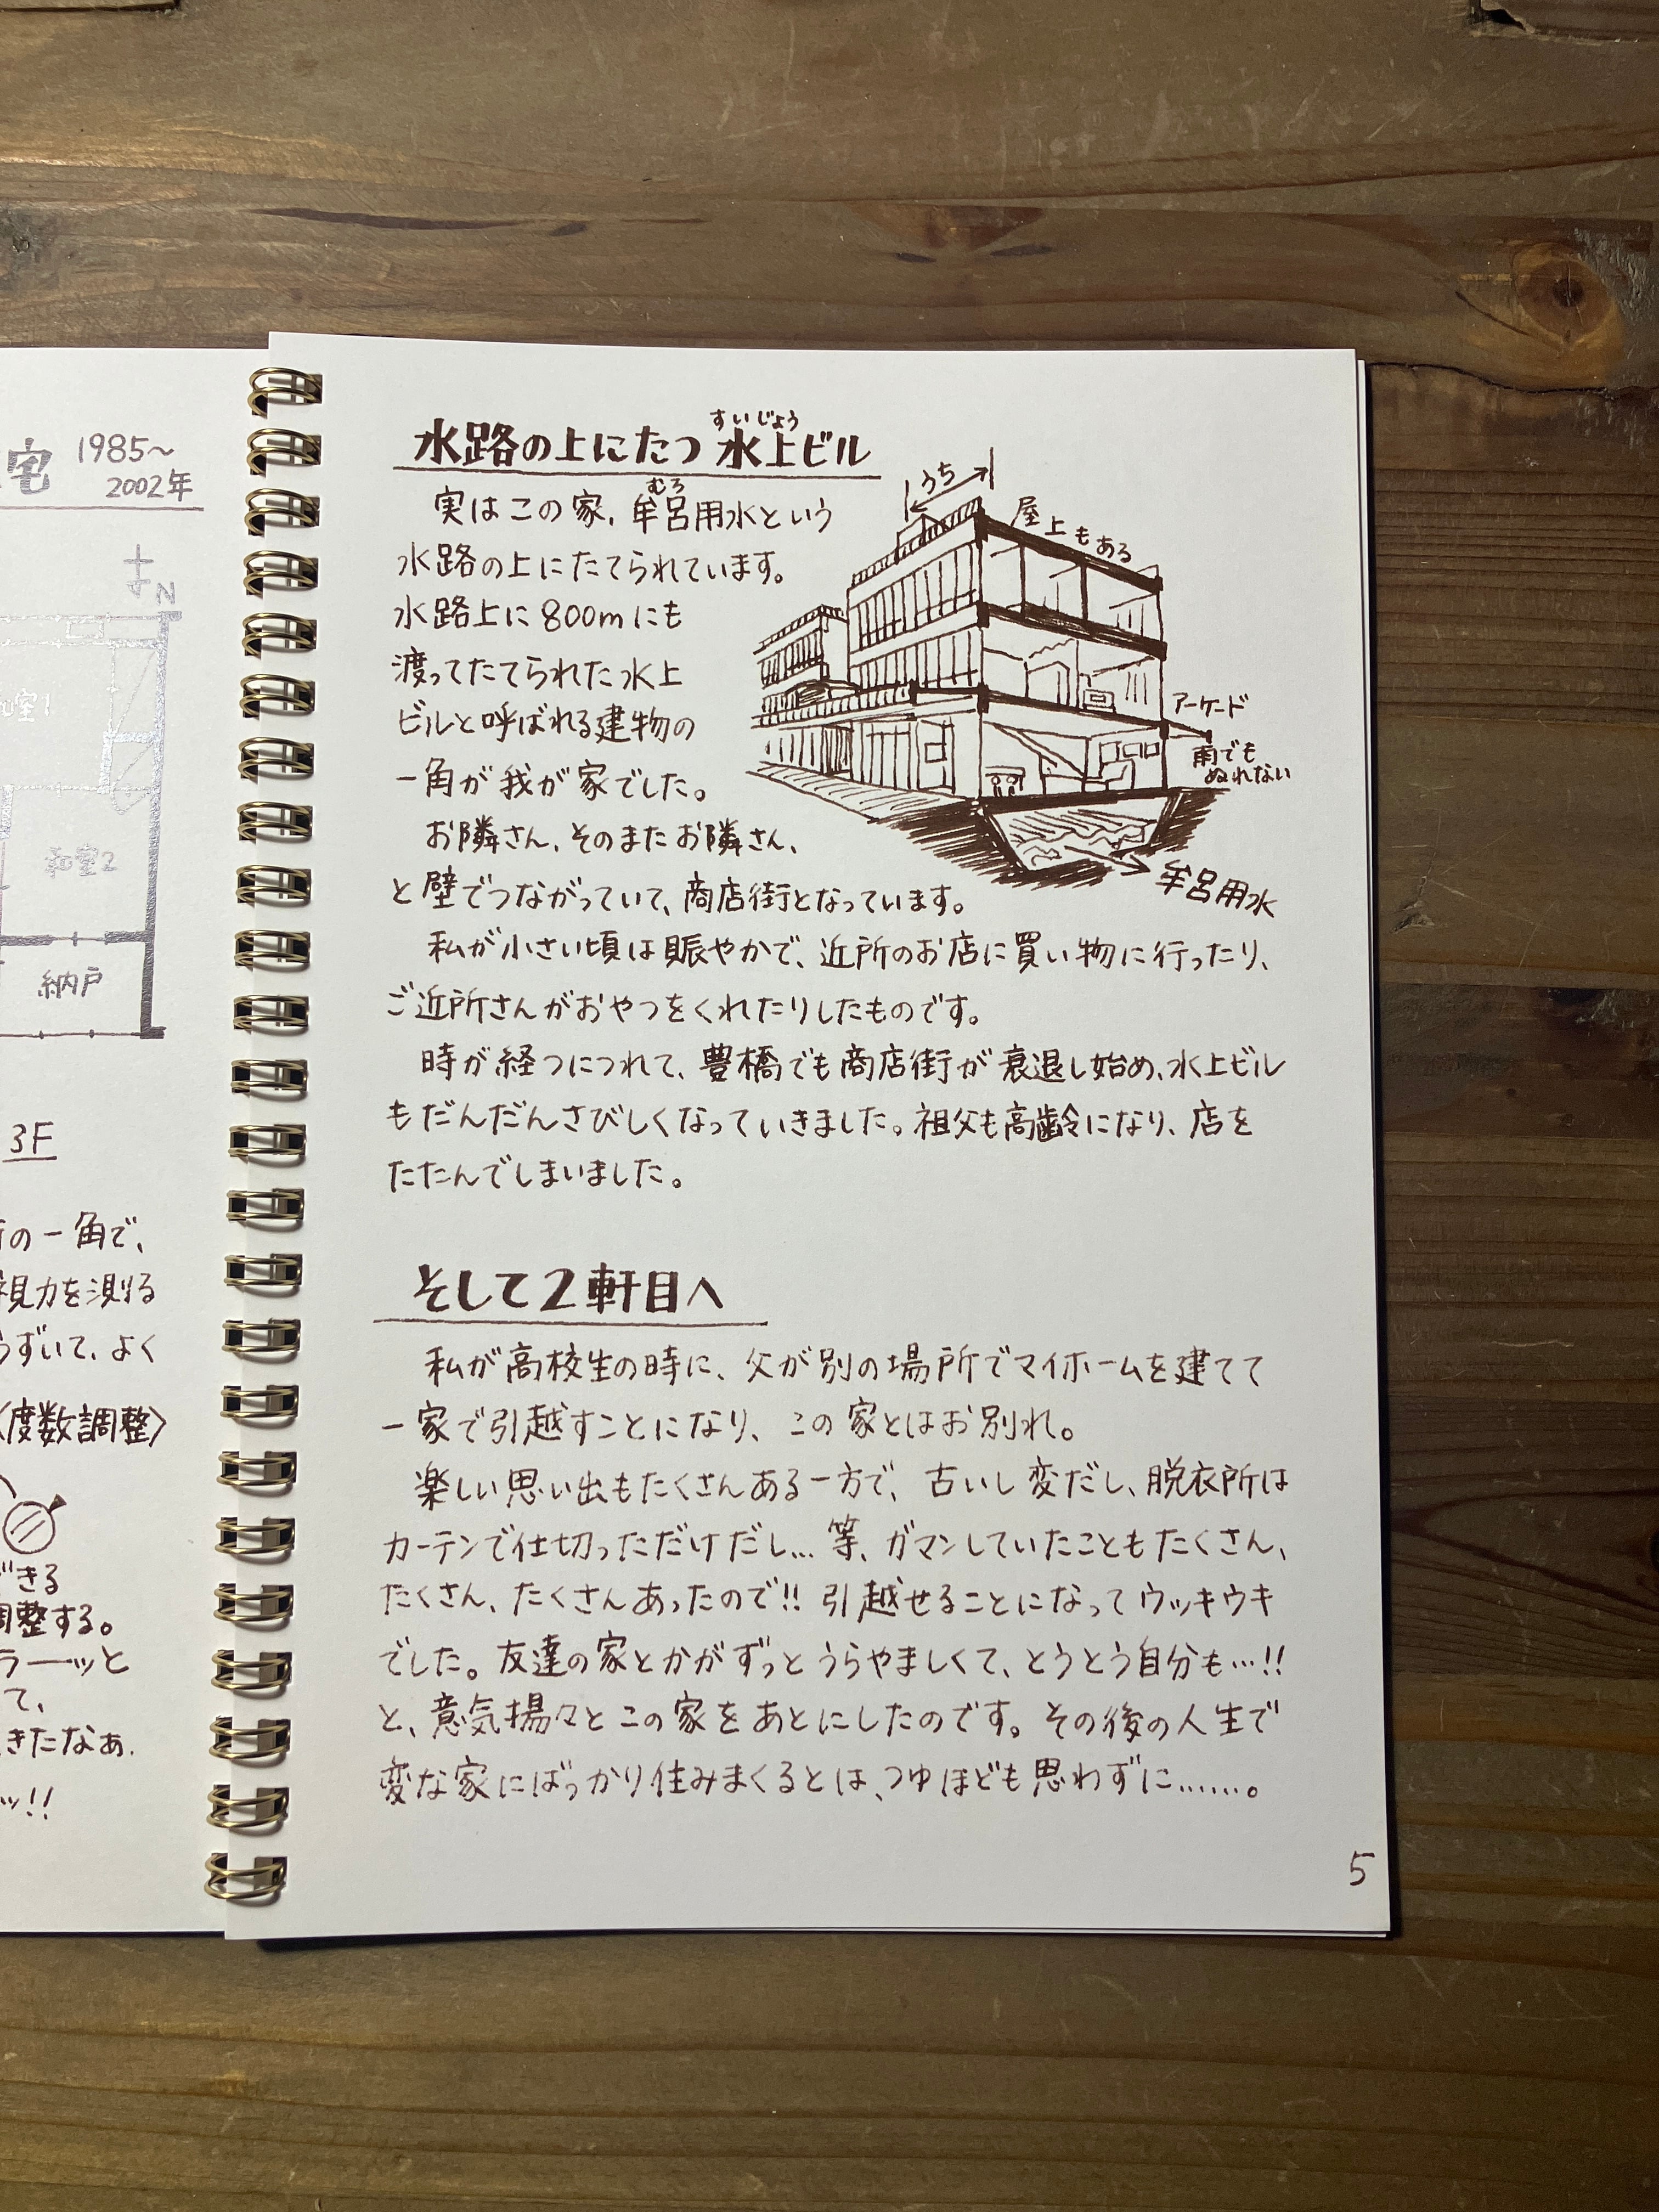 宅 1985〜
2002年
N
和室2
納戸
3F
の一角で、
視力を測る
うずいて、よく
〈度数調整〉
できる
調整する。
ラーーッと
て、
きたなぁ.
ッ!!
すいじょう
水路の上にたつ 水上ビル
むろ
実はこの家、牟呂用水という
水路の上にたてられています。
水路上に800mにも
渡ってたてられた水上
ビルと呼ばれる建物の
一角が我が家でした。
お隣さん、そのまたお隣さん、
と壁でつながっていて、商店街となっています。
私が小さい頃は賑やかで、近所のお店に買い物に行ったり、
ご近所さんがおやつをくれたりしたものです。
時が経つにつれて、豊橋でも商店街が衰退し始め、水上ビル
もだんだんさびしくなっていきました。祖父も高齢になり、店を
たたんでしまいました。
うち
屋上もある
アーケード
雨でも
ぬれない
牟呂用水
そして2軒目へ
私が高校生の時に、父が別の場所でマイホームを建てて
一家で引越すことになり、この家とはお別れ。
楽しい思い出もたくさんある一方で、古いし変だし、脱衣所は
カーテンで仕切っただけだし…等、ガマンしていたこともたくさん、
たくさん、たくさんあったので!! 引越せることになってウッキウキ
でした。友達の家とかがずっとうらやましくて、とうとう自分も…!!
と、意気揚々とこの家をあとにしたのです。その後の人生で
変な家にばっかり住みまくるとは、つゆほども思わずに……。
5